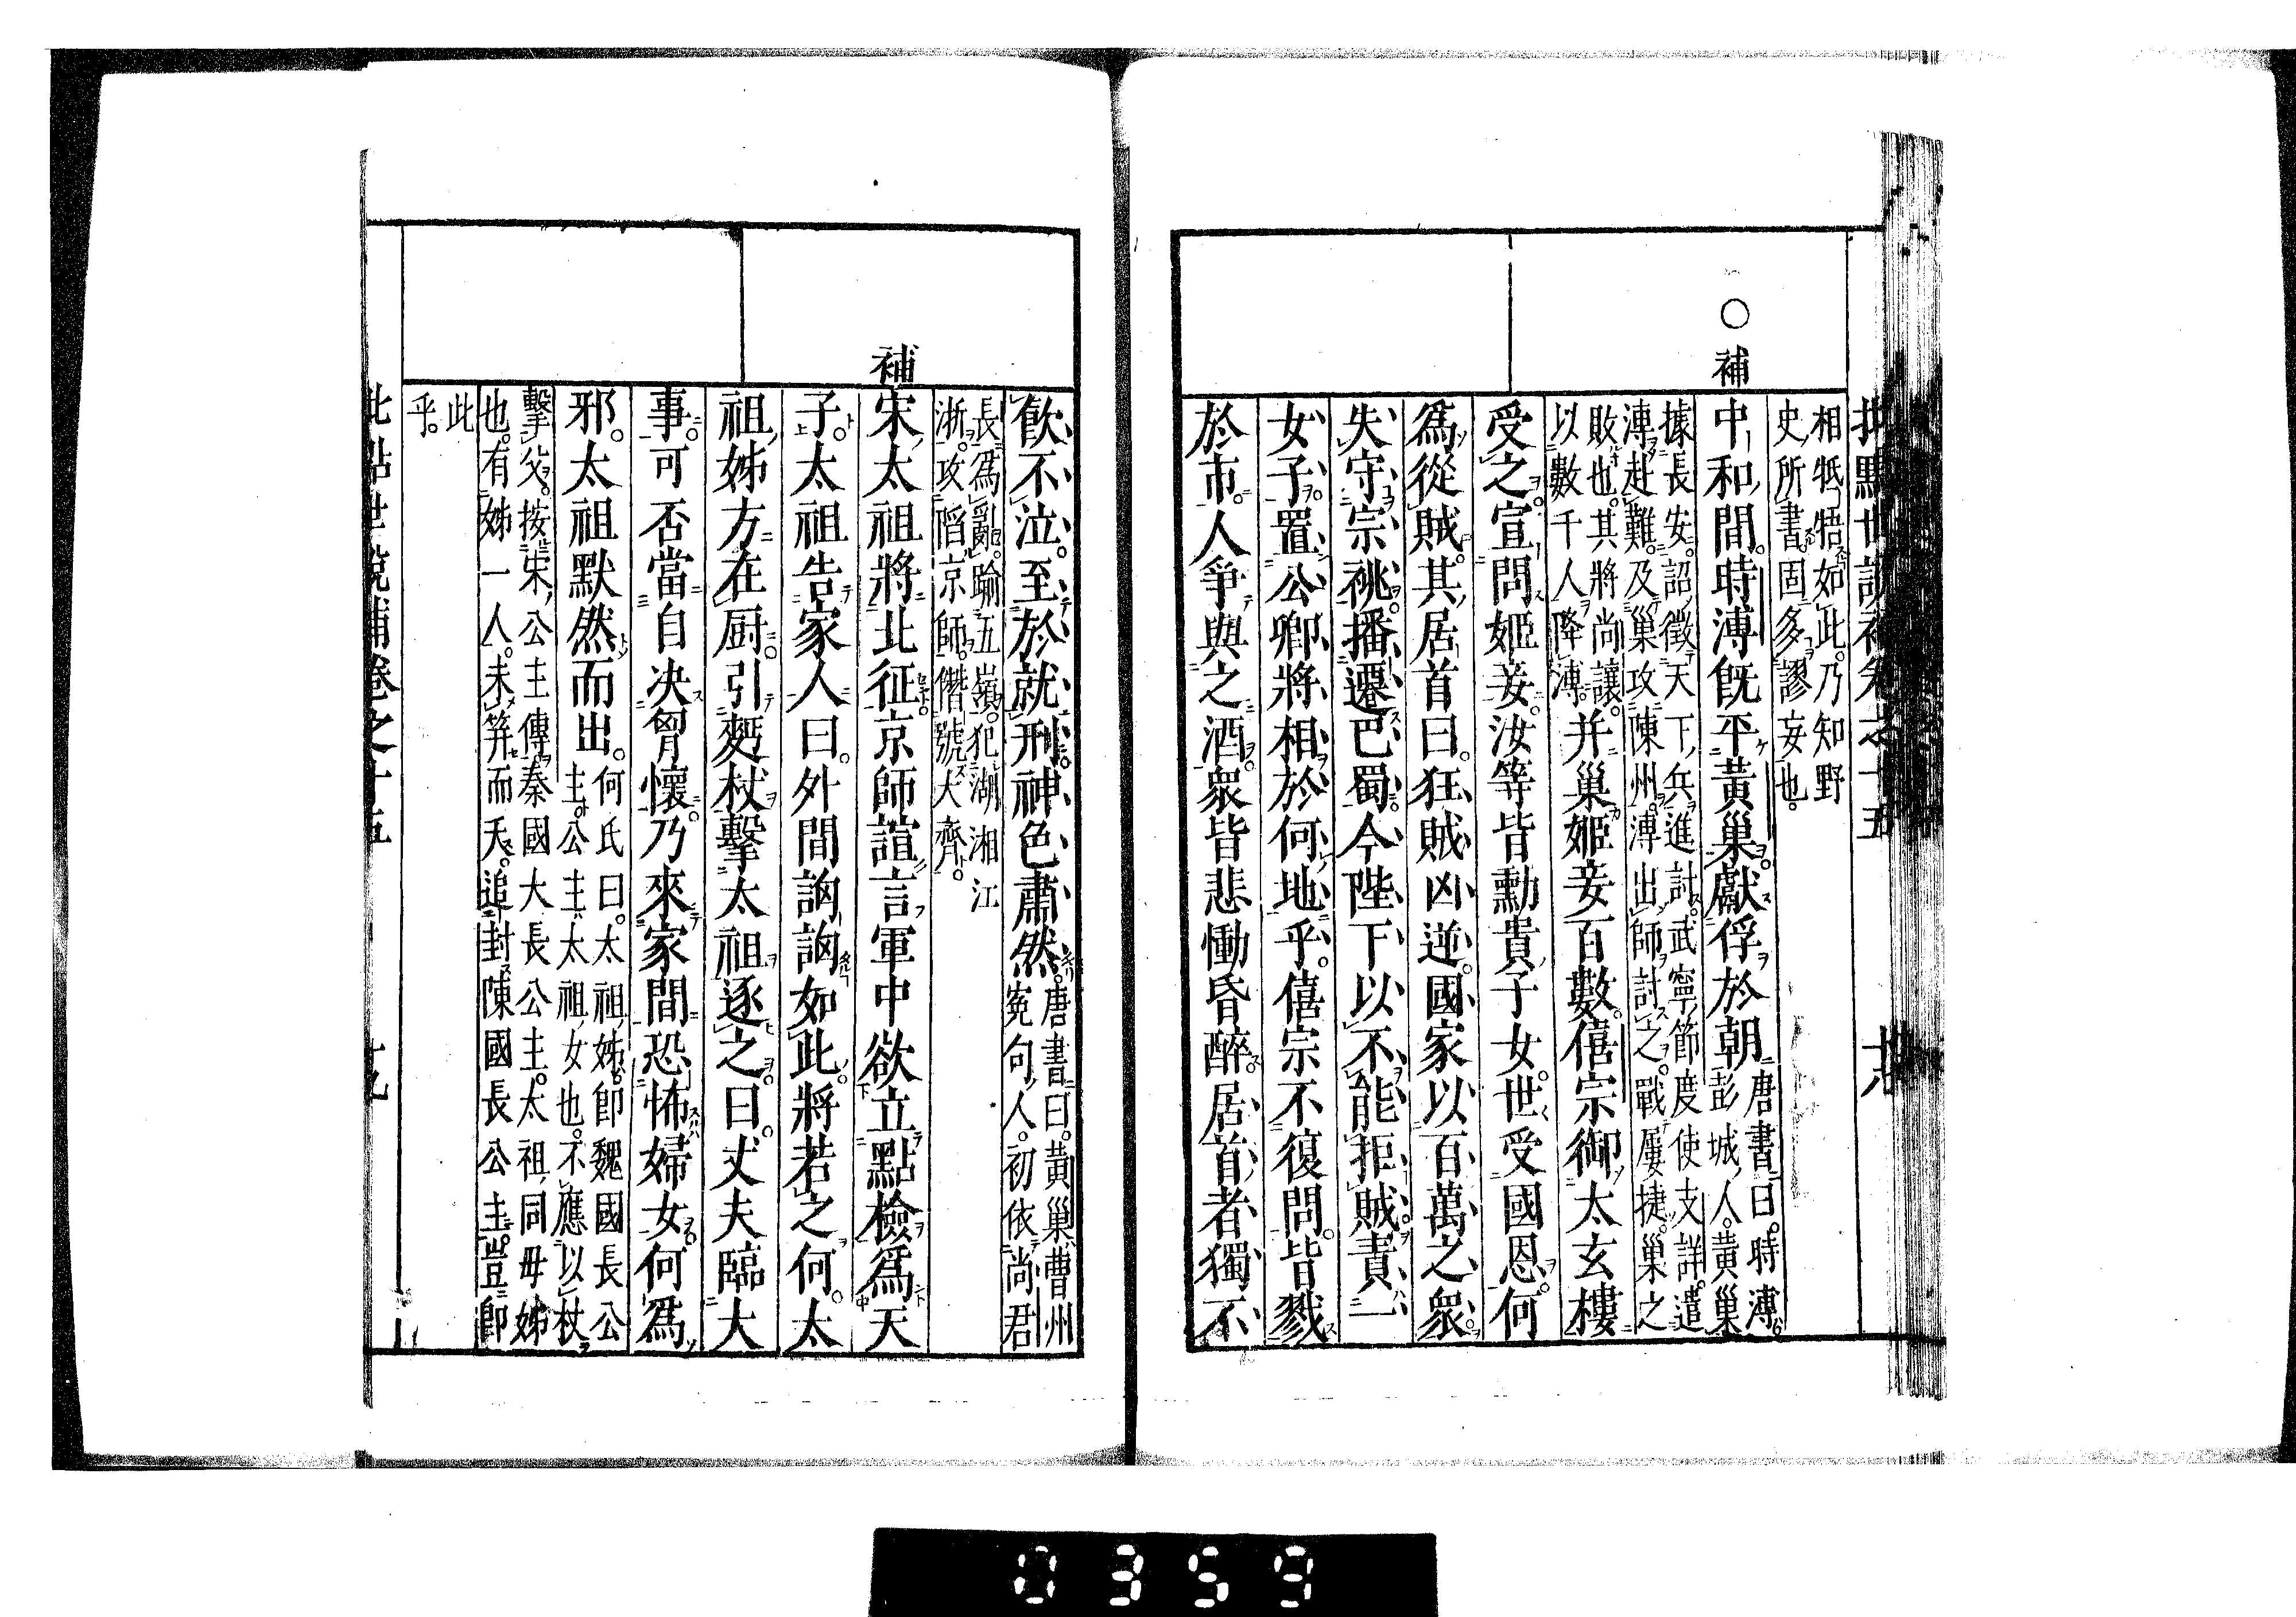 相牴牾如此。乃知野
史所書。固多謬妄也。
○補
中和間。時溥旣平黃巢。獻俘於朝
唐書曰。時溥。
彭城人。黃巢
據長安。詔徵天下兵進討。武寧節度使支詳。遣
溥赴難。及巢攻陳州。溥出師討之。戰屢捷。巢之
敗也。其將尚讓。
以數千人降溥。
并巢姬妾百數。僖宗御太玄樓
受之。宣問姬妾。汝等皆勳貴子女。世受國恩。何
爲從賊。其居首曰。狂賊凶逆。國家以百萬之衆。
失守宗祧。播遷巴蜀。今陛下以不能拒賊。責一
女子。置公卿將相於何地乎。僖宗不復問。皆戮
於市。人爭與之酒。衆皆悲慟昏醉。居首者獨不
飮不泣。至於就刑。神色肅然。
唐書曰。黃巢。曹州
冤句人。初依尚君
長爲亂。踰五嶺。犯湖湘江
浙。攻䧟京師。僭號大齊。
補
宋太祖將北征。京師諠言。軍中欲立點檢爲天
子。太祖告家人曰。外間詾詾如此。將若之何。太
祖姊方在厨。引麪杖擊太祖逐之。曰。丈夫臨大
事。可否當自決胷懷。乃來家間。恐怖婦女。何爲
邪。太祖默然而出。
何氏曰。太祖姊。卽魏國長公
主。公主太祖女也。不應以杖
擊父。按宋公主傳。秦國大長公主。太祖同母姊
也。有姊一人。未笄而夭。追封陳國長公主。豈卽
此
乎。
批點世說補卷之十五
十九
0359